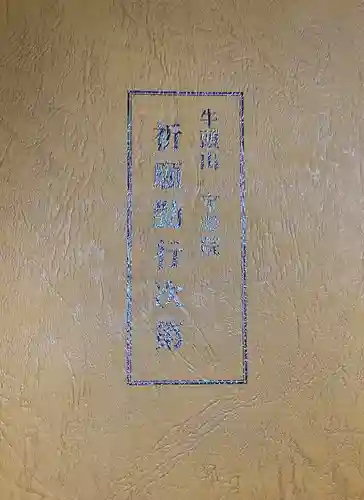 牛頭山 守善院
祈願勤行次第